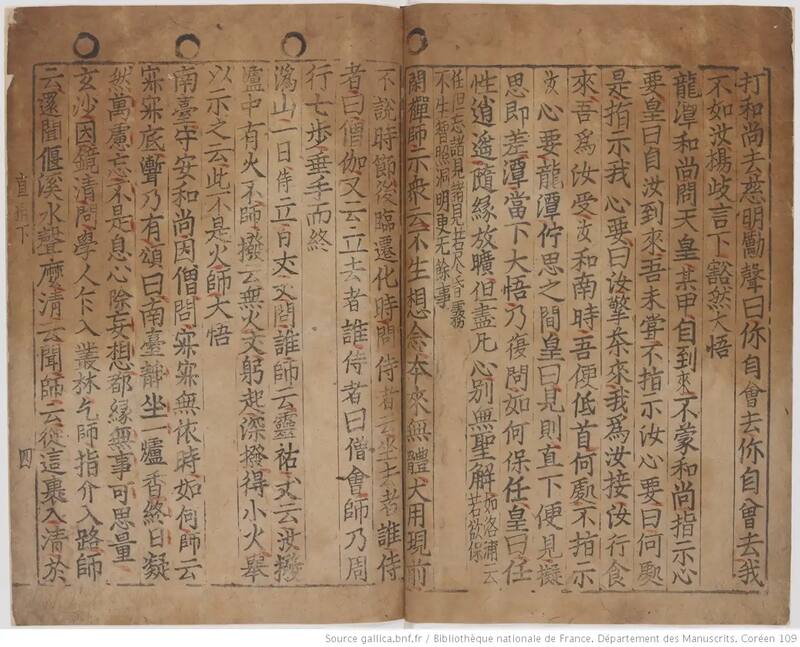 打和尚去慈明勵聲曰你自會去你自會去我
不如汝楊歧言下豁然大悟
龍潭和尚問天皇某甲自到來不蒙和尚指示心
要皇曰自汝到來吾未甞不指示汝心要曰何處
是指示我心要曰汝擎茶來我爲汝接汝行食
來吾爲汝受汝和南時吾便低首何處不指示
汝心要龍潭佇思之間皇曰見則直下便見擬
思即差潭當下大悟乃復問如何保任皇曰任
性逍遥隨緣放曠但盡凡心別無聖解如洛浦云若欲保
任但忘諸見諸見若尽昏霧不生智照洞明更无餘事
閑禪師示衆云不生想念本來無體大用現前
不說時節後臨遷化時問侍者云坐去者誰侍
者曰僧伽又云立去者誰侍者曰僧會師乃周
行七歩垂手而終
溈山一日侍立百丈丈問誰師云靈祐丈云汝撥
爐中有火不師撥云無火丈躬起深撥得小火舉
以示之云此不是火師大悟
南臺守安和尚因僧問寂寂無依時如何師云
寂寂底聻乃有頌曰南臺靜坐一爐香終日凝
然萬慮忘不是息心除妄想都緣無事可思量
玄沙因鏡清問學人乍入叢林乞師指介入路師
云還聞偃溪水聲麽清云聞師云從這裏入清於
直指下 四
Source gallica.bnf.fr / Bibliothèque nationale de France. Département des Manuscrits. Coréen 109